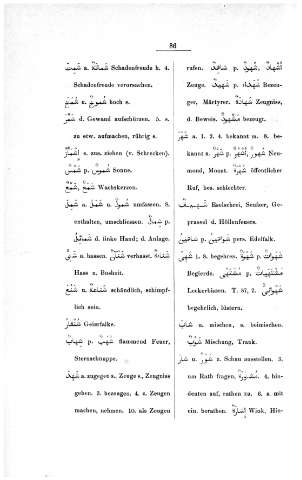 86
شَمِتَ a. شَمَاتَةٌ Schadenfreude h. 4.
Schadenfreude verursachen.
شَمَخَ u. شُمُوخٌ hoch s.
شَمَّرَ d. Gewand aufschürzen. 5. s.
zu etw. aufmachen, rührig s.
اِشْمَأَزَّ s. zus. ziehen (v. Schrecken).
شَمْسٌ p. شُمُوسٌ Sonne.
شَمْعٌ, شَمَعٌ Wachskerzen.
شَمِلَ a. شَمَلَ u. umfassen. 8.
enthalten, umschliessen. شِمَالٌ p.
شَمَائِلُ d. linke Hand; d. Anlage.
a. hassen. verhasst.
Hass u. Bosheit.
شَنُعَ u. شَنَاعَةٌ s. schändlich, schimpf-
lich sein.
شُنْقَارٌ Geierfalke.
شِهَابٌ p. شُهُبٌ flammend Feuer,
Sternschnuppe.
شَهِدَ a. zugegen s. Zeuge s., Zeugniss
geben. 3. bezeugen. 4. z. Zeugen
machen, nehmen. 10. als Zeugen
rufen. شَاهِدٌ p. شُهُودٌ, أَشْهَادٌ
Zeuge. شَهِيدٌ p. شُهَدَاءُ Bezeu-
ger, Märtyrer. شَهَادَةٌ Zeugniss,
d. Beweis. مَشْهُودٌ bezeugt.
شَهَرَ a. 1. 2. 4. bekannt m. 8. be-
kannt s. شَهْرٌ p. أَشْهُرٌ, شُهُورٌ Neu-
mond, Monat. شُهْرَةٌ öffentlicher
Ruf, bes. schlechter.
شَهِيقٌ Eselschrei, Seufzer, Ge-
prassel d. Höllenfeuers.
شَاهِينٌ p. شَوَاهِينُ pers. Edelfalk.
شَهِيَ 1. 8. begehren. شَهْوَةٌ p. شَهَوَاتٌ
Begierde. مُشْتَهًى p. مُشْتَهَيَاتٌ
Leckerbissen. T. 87, 2. شَهْوَانِيٌّ
begehrlich, lüstern.
شَابَ u. mischen, u. beimischen.
شَوْبٌ Mischung, Trank.
شَارَ u. شَوْرٌ z. Schau ausstellen. 3.
um Rath fragen. مَشُورَةٌ 4. hin-
deuten auf, rathen zu. 6. s. mit
ein. berathen. إِشَارَةٌ Wink, Hin-